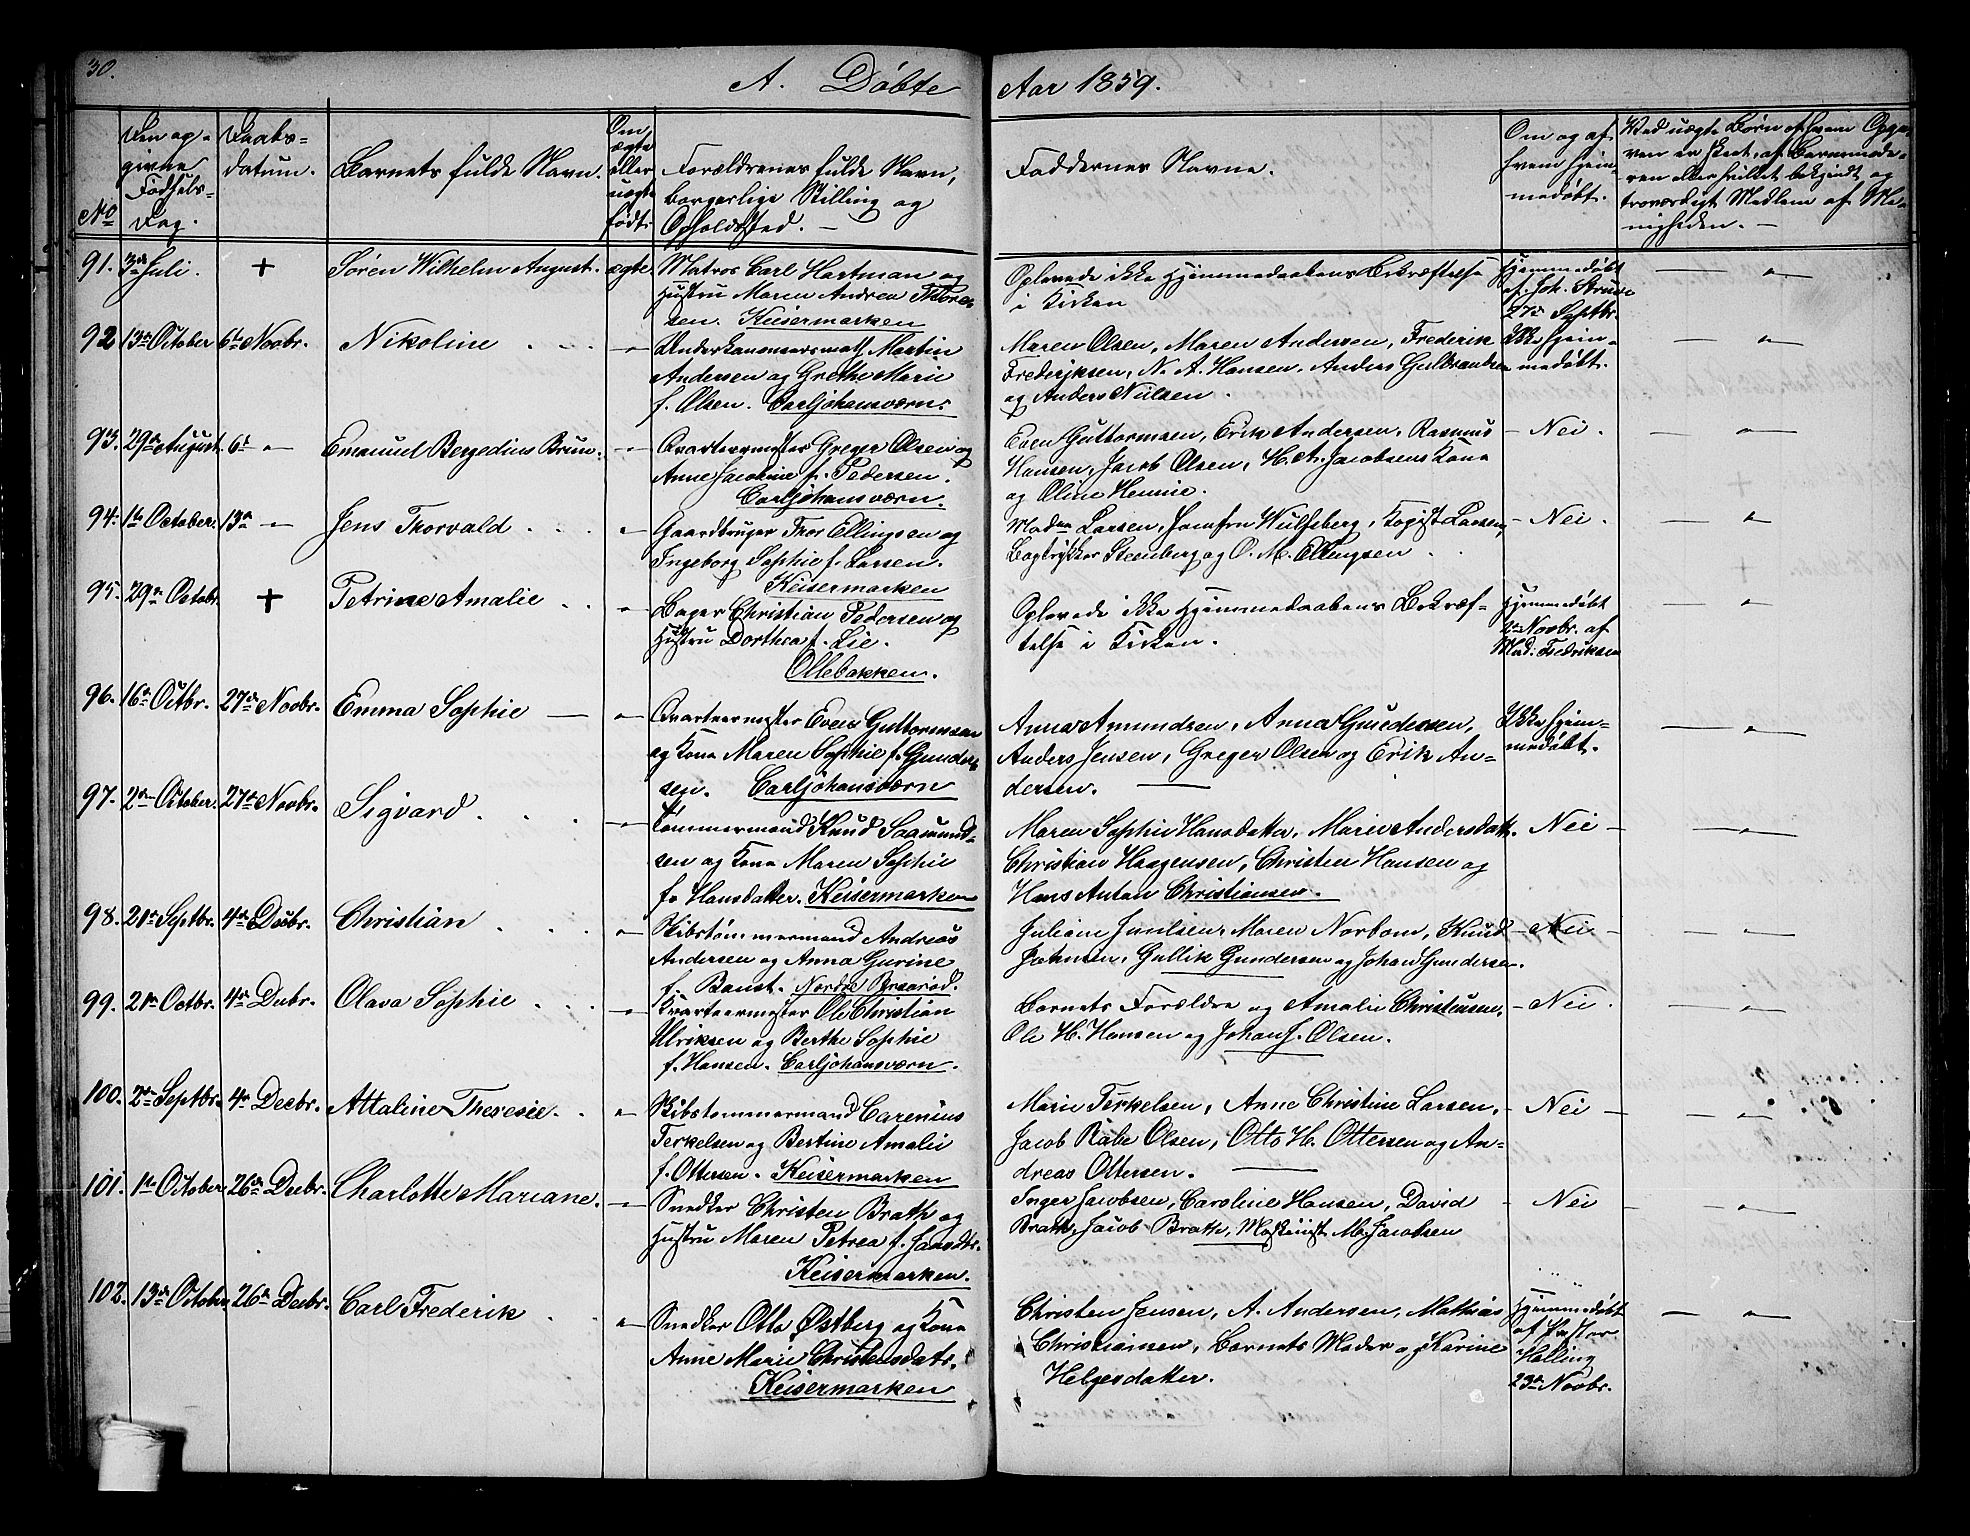 30.
A. Döbte
Aar 1859.
No
Den op-
givne
Födsels-
Dag.
Daabs-
datum.
Barnets fulde Navn.
Om
ægte
eller
uægte
födt.
Forældrenes fulde Navn,
borgerlige Stilling og
Opholdssted. —
Faddernes Navne.
Om og af
hvem hjem-
medöbt.
Ved uægte Börn af hvem Opga-
ven er skeet, af Barnemode-
ren eller hvilket bekjendt og
troværdigt Medlem af Me-
nigheden. —
91. 3die Juli. + Sören Wilhelm August. ægte
Matros Carl Hartman og
Hustru Maren Andrea Thore-
sen. Keisermarken
Oplevede ikke Hjemmedaabens Bekræftelse
i Kirken
Hjemmedöbt
af Joh. Struve
27de Septbr.
92 13de October 6te Novbr. Nikoline
Underkanoneersmath Martin
Andersen og Grethe Marie
f. Olsen. Carljohansværn.
Maren Olsen, Maren Andersen, Frederik
Frederiksen, N. A. Hansen, Anders Gulbrandsen
og Anders Nielsen.
Ikke hjem-
medöbt.
93. 29de August 6te — Emanuel Bergedius Bruun.
Qvarteermester Greger Olsen og
Anne Jacobine f. Pedersen.
Carljohansværn.
Even Guttormsen, Erik Andersen, Rasmus
Hansen, Jacob Olsen, H. A. Jacobsens Kone
og Oline Hennie.
— Nei.
94. 1ste October. 13de — Jens Thorvald
Gaardbruger Thor Ellingsen og
Ingeborg Sophie f. Larsen.
Keisermarken
Madam Larsen, Jomfru Wulfsberg, Kopist Larsen,
Bogtrykker Steenberg og O. M. Ellingsen
— Nei.
95. 29de Octobr. + Petrine Amalie
Bager Christian Pedersen og
Hustru Dorthea f. Lie.
Ollebakken.
Oplevede ikke Hjemmedaabens Bekræf-
telse i Kirken.
Hjemmedöbt
2den Novbr. af
Mad. Fredriksen
96. 16de Octbr. 27de Novbr. Emma Sophie —
Qvarteermester Even Guttormsen
og Kone Maren Sophie f. Gunder-
sen. Carljohansværn
Anna Amundsen, Anna Gundersen,
Anders Jensen, Greger Olsen og Erik An-
dersen.
Ikke hjem-
medöbt.
97. 2den October. 27de Novbr. Sigvard
Tömmermand Knud Saamund-
sen og Kone Maren Sophie
f. Hansdatter. Keisermarken
Maren Sophie Hansdatter, Marie Andersdatt.
Christian Haagensen, Christen Hansen og
Hans Anton Christiansen.
Nei —
98. 21de Septbr. 4de Decbr. Christian
Skibstömmermand Andreas
Andersen og Anna Gurine
f. Nordre Braaröd.
Juliane Maren Norbom, Knud
Gullik Gundersen og Johan Gundersen.
— Nei —
99. 21de Octbr. 4de Decbr. Olava Sophie
Kvarteermester Ole Christian
Ulriksen og Berthe Sophie
f. Hansen. Carljohansværn.
Barnets Forældre og Amalie Christensen,
Ole H. Hansen og Johan J. Olsen.
— Nei.
100. 2den Septbr. 4de Decbr. Attaline Theresie.
Skibstömmermand Carenius
Terkelsen og Bertine Amalie
f. Ottersen. Keisermarken
Marie Terkelsen, Anne Christine Larsen,
Jacob Rabe Olsen, Otto H. Ottersen og An-
dreas Ottersen.
— Nei —
101. 1ste October 26de Decbr. Charlotte Mariane.
Snedker Christen Brath og
Hustru Maren Petrea f.
Keisermarken.
Inger Jacobsen, Caroline Hansen, David
Brath, Jacob Brath, Maskinist M. Jacobsen
Nei
102. 13de October 26de Decbr. Carl Frederik
Snedker Otto Östberg og Kone
Anne Marie Christensdatr.
Keisermarken
Christen Jensen, A. Andersen, Mathias
Christiansen, Barnets Moder og Karine
Helgesdatter.
Hjemmedöbt
af Pastor
Halling
23de Novbr.